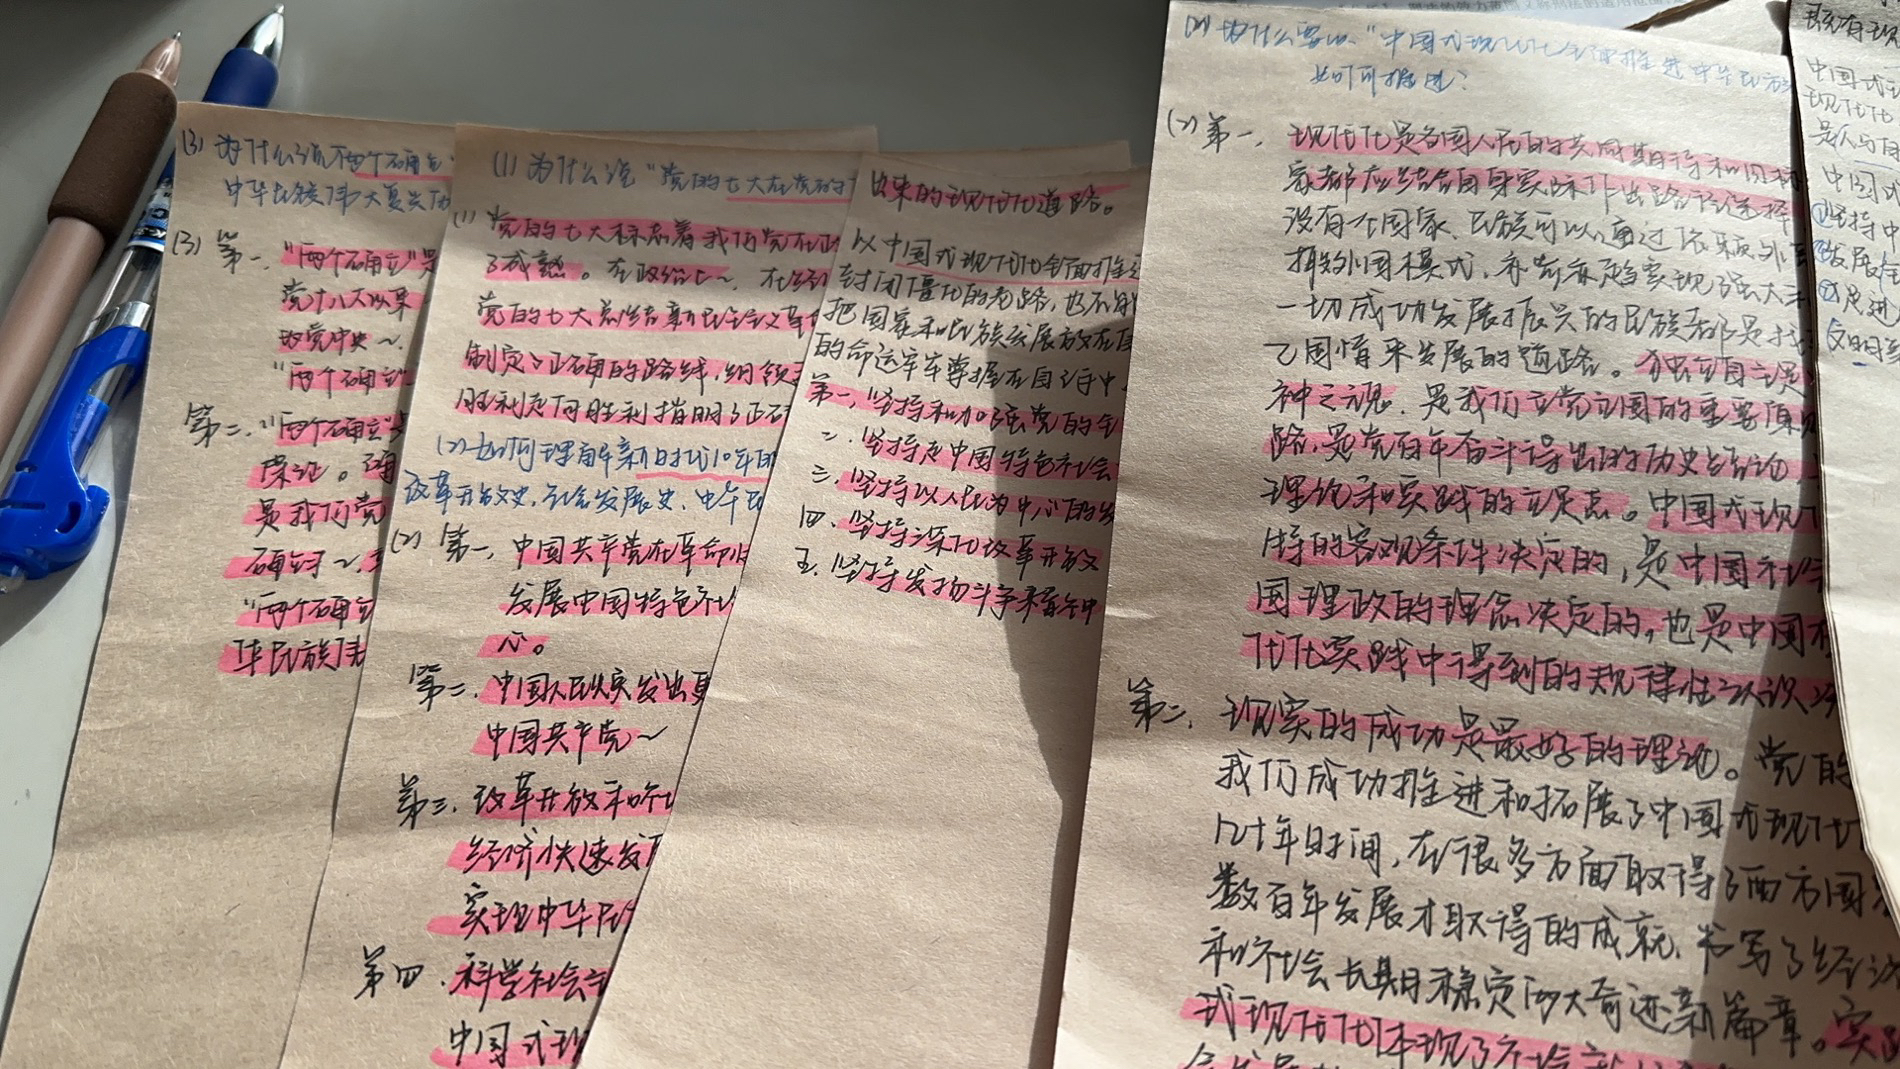 (3) 为什么说"两个确立"
中华民族伟大复兴历
(3) 第一、"两个确立"是
党十八大以来
的党中央~.
"两个确立"
第二、"两个确立"
保证。确
是我们党
确对~.
"两个确立
华民族伟
(1) 为什么说"党的七大在党的
(1) 党的七大标志着我们党在政
了成熟。在政治上~、在经
党的七大总结新民主主义革
制定了正确的路线、纲领
胜利走向胜利指明了正确
(2) 如何理解新时代10年的
改革开放史、社会发展史、中华民
(2) 第一、中国共产党在革命性
发展中国特色社
心。
第二、中国人民焕发出
中国共产党~
第三、改革开放和社
经济快速发展
实现中华民
第四、科学社会主
中国式现
出来的现代化道路。
以中国式现代化全面推进
封闭僵化的老路,也不
把国家和民族发展放在自
的命运牢牢掌握在自己手中
第一、坚持和加强党的全
二、坚持走中国特色社会
三、坚持以人民为中心的发
四、坚持深化改革开放
五、坚持发扬斗争精神
为什么要以"中国式现代化全面推进中华民族
如何推进?
(2) 第一、现代化是各国人民的共同期待和目标
家都应结合自身实际作出路径选择
没有一个国家、民族可以通过依赖外
搬外国模式、亦步亦趋实现强大
一切成功发展振兴的民族都是找
己国情来发展的道路。独立自主是
神之魂、是我们立党立国的重要原
路,是党百年奋斗得出的历史结论
理论和实践的立足点。中国式现代
特的客观条件决定的,是中国社会
国理政的理念决定的,也是中国
代化实践中得到的规律性认识决
第二、现实的成功是最好的理论。党的
我们成功推进和拓展了中国式现代化
几十年时间,在很多方面取得了西方国
数百年发展才取得的成就、书写了经济
和社会长期稳定两大奇迹新篇章。实
式现代化体现了社会
中国式
现代化
是人与自
中国式
①坚持中
②发展全